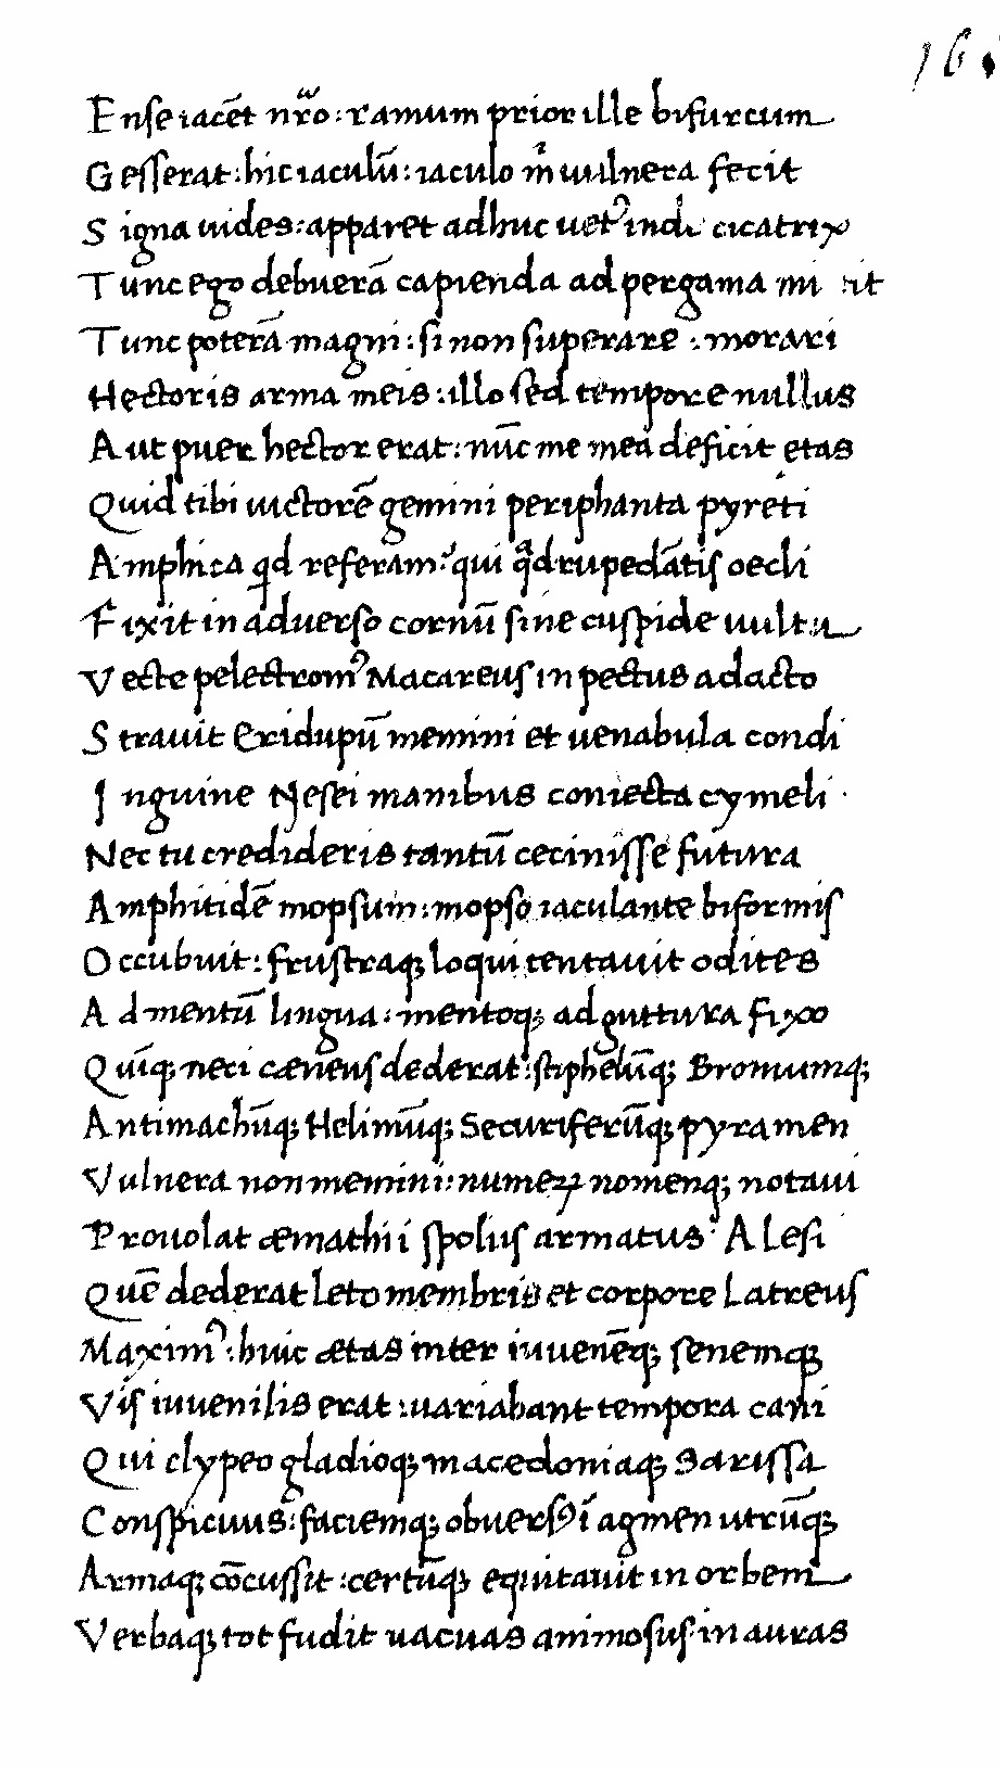 16
Ense iacēt nr̄o : ramum prior ille bifurcum
Gesserat : hic iaculū : iaculo m̄ uulnera fecit
Signa uides : apparet adhuc uetꝰ inde cicatrix
Tunc ego debuerā capienda ad pergama mi it
Tunc poterā magni : si non superare : morari
Hectoris arma meis : illo sed tempore nullus
Aut puer hector erat : nūc me mea deficit etas
Quid tibi uictorē gemini periphanta pyreti
Amphica qd referam : qui qdrupedātis oecli
Fixit in aduerso cornū sine cuspide uultu
Vecte pelectromꝰ Macareus in pectus adacto
Strauit Eridupū memini et uenabula condi
Inguine Nesei manibus coniecta cymeli
Nec tu credideris tantū cecinisse futura
Amphitidē mopsum : mopso iaculante biformis
Occubuit : frustraqꝫ loqui tentauit odites
Ad mentū lingua : mentoqꝫ ad guttura fixo
Quīqꝫ neci cæneus dederat : stiphelūqꝫ Bromumqꝫ
Antimachūqꝫ Helimūqꝫ Securiferūqꝫ pyramen
Vulnera non memini : numeꝝ nomenqꝫ notaui
Prouolat æmathii spoliis armatus Alesi
Quē dederat leto membris et corpore Latreus
Maximꝰ : huic ætas inter iuuenēqꝫ senemqꝫ
Vis iuuenilis erat : uariabant tempora cani
Qui clypeo gladioqꝫ macedoniaqꝫ Sarissa
Conspicuus : faciemqꝫ obuersꝰ ī agmen utrūqꝫ
Armaqꝫ cōcussit : certūqꝫ equitauit in orbem
Verbaqꝫ tot fudit uacuas animosus in auras